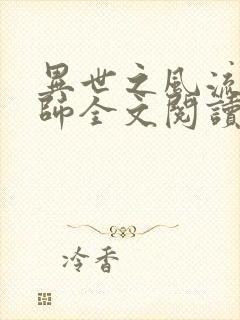 異世之風流
師全文閱讀
冷香